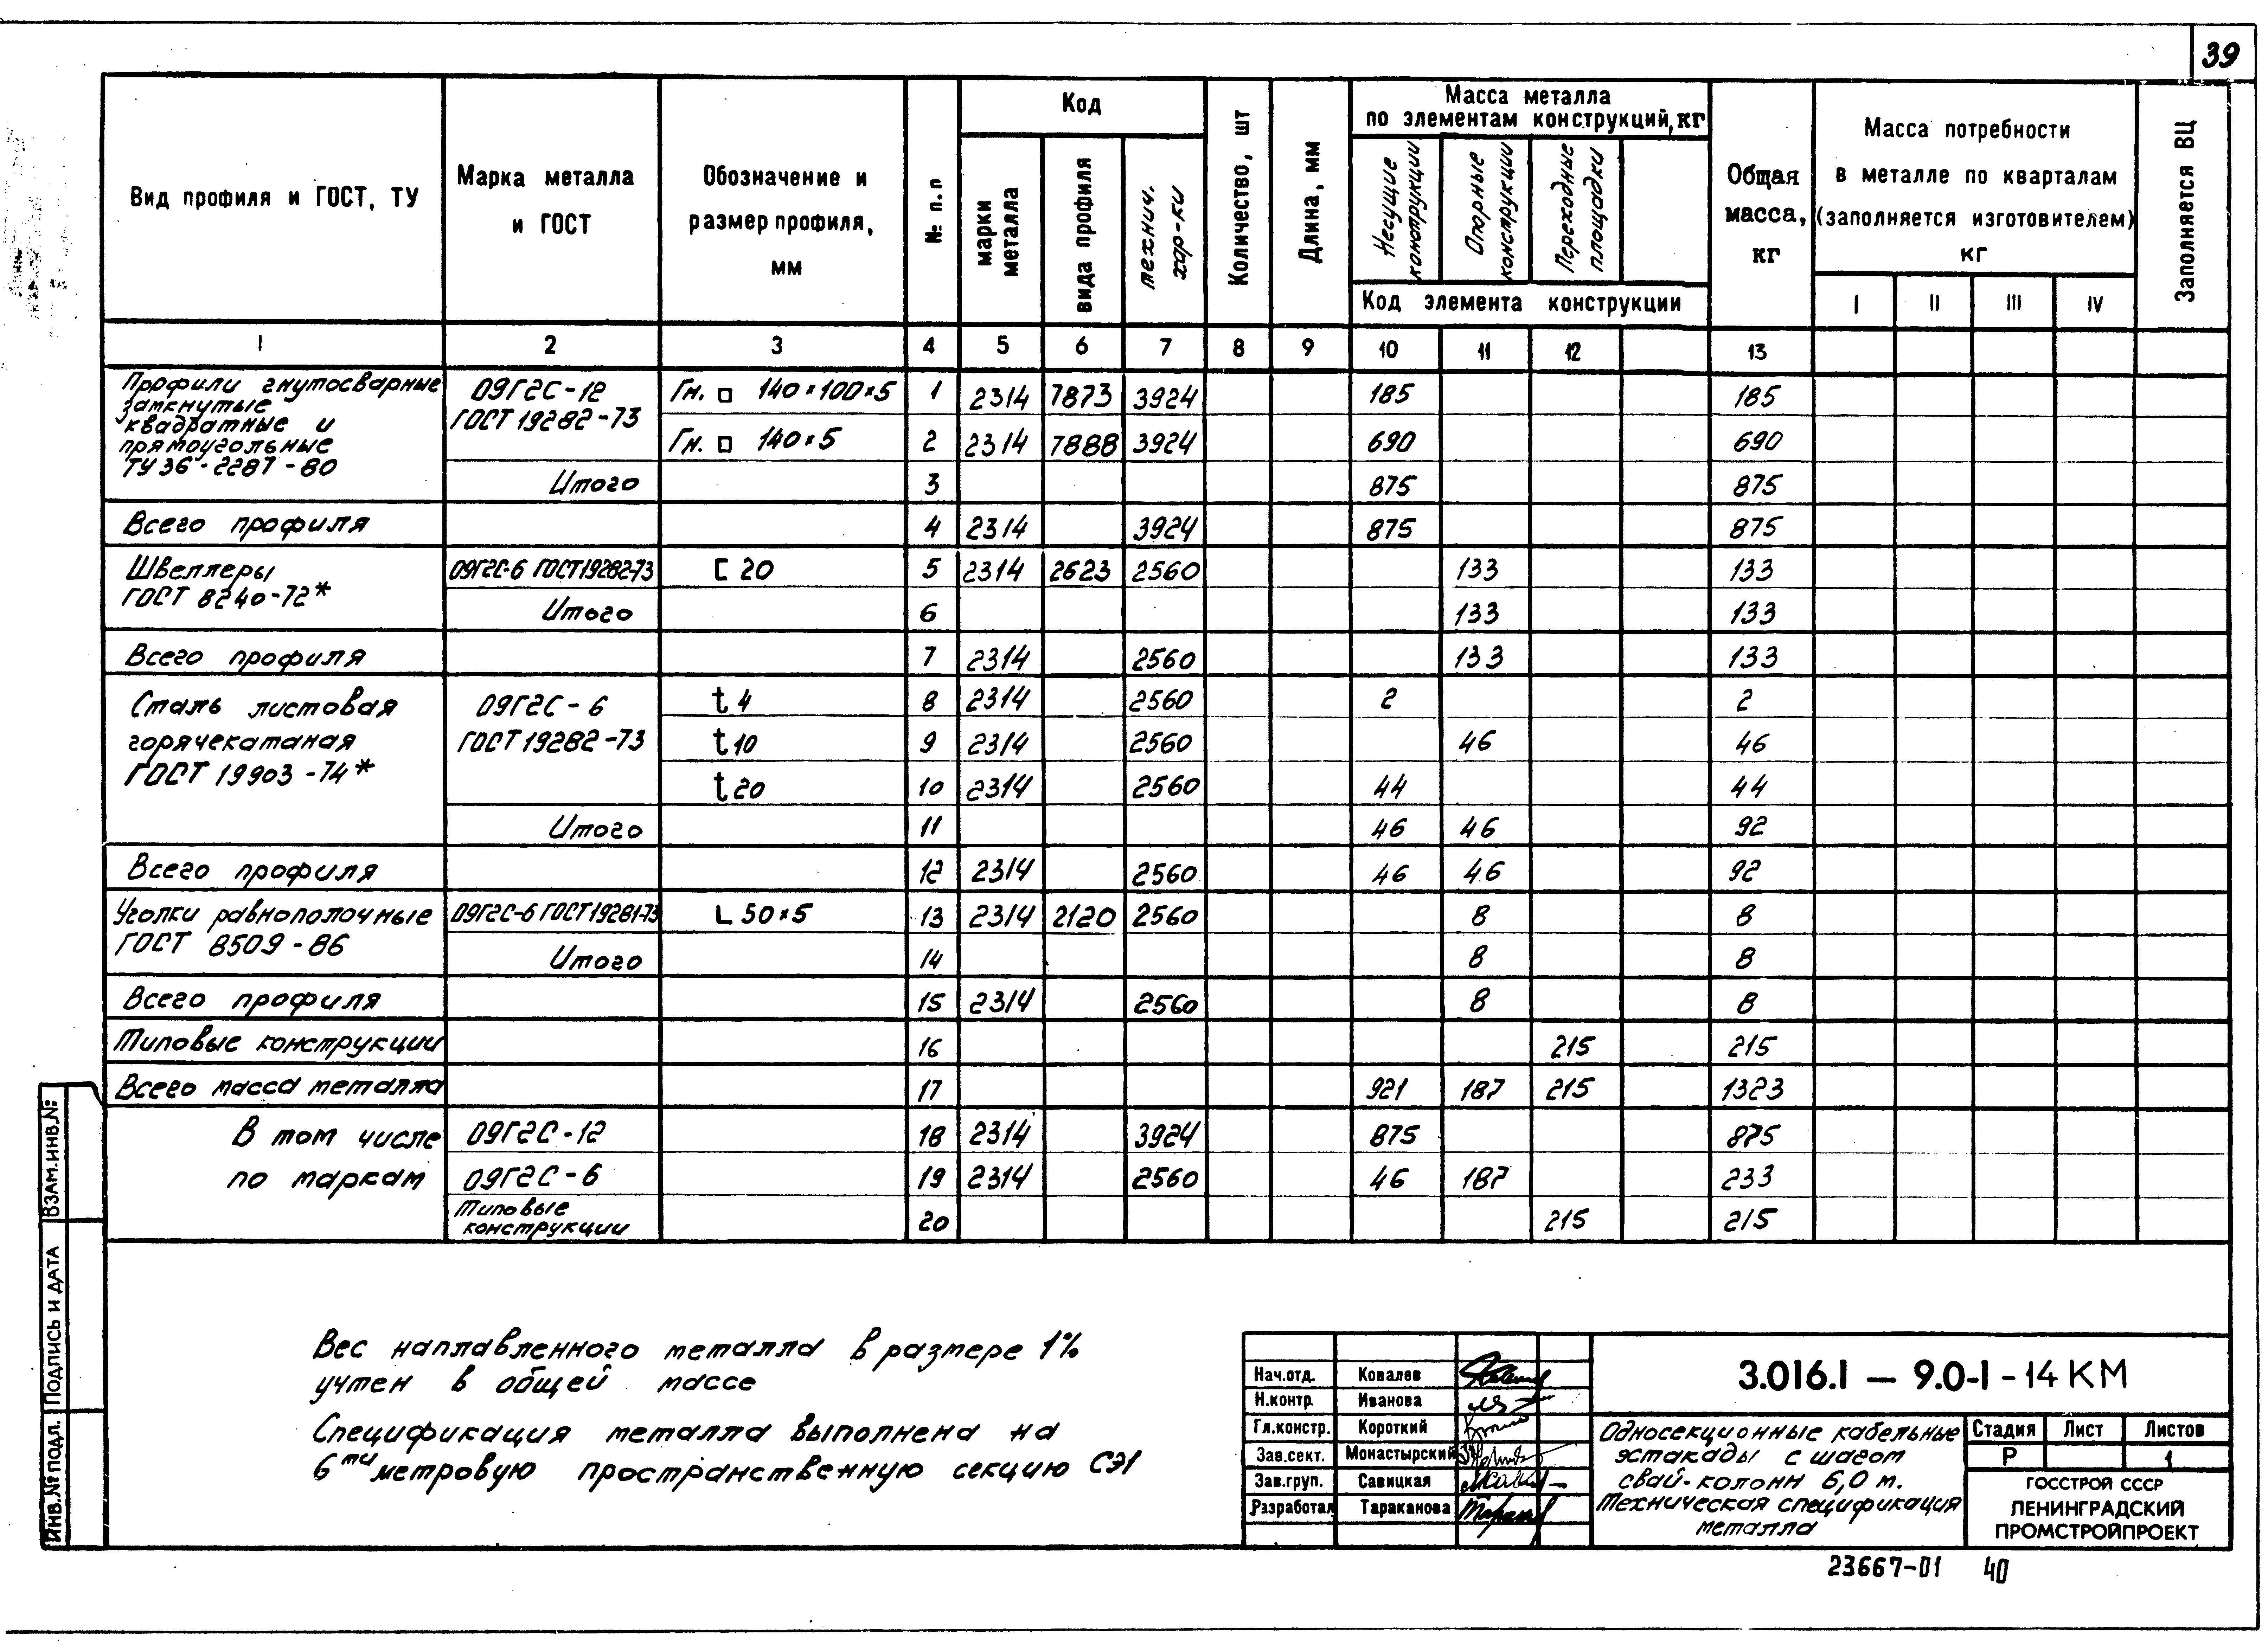 39
Вид профиля и ГОСТ, ТУ
Марка металла
и ГОСТ
Обозначение и
размер профиля,
мм
№ п.п
Код
марки
металла
вида профиля
технич.
хар-ки
Количество, шт
Длина, мм
Масса металла
по элементам конструкций, кг
Несущие
конструкции
Опорные
конструкции
Переходные
площадки
Код элемента конструкции
Общая
масса,
кг
Масса потребности
в металле по кварталам
(заполняется изготовителем)
кг
I II III IV
Заполняется ВЦ
1 2 3 4 5 6 7 8 9 10 11 12 13
Профили гнутосварные
замкнутые
квадратные и
прямоугольные
ТУ 36-2287-80
09Г2С-12
ГОСТ 19282-73
Гн. □ 140×100×5 1 2314 7873 3924 185 185
Гн. □ 140×5 2 2314 7888 3924 690 690
Итого 3 875 875
Всего профиля 4 2314 3924 875 875
Швеллеры
ГОСТ 8240-72*
09Г2С-6 ГОСТ19282-73 [ 20 5 2314 2623 2560 133 133
Итого 6 133 133
Всего профиля 7 2314 2560 133 133
Сталь листовая
горячекатаная
ГОСТ 19903-74*
09Г2С-6
ГОСТ 19282-73
t 4 8 2314 2560 2 2
t 10 9 2314 2560 46 46
t 20 10 2314 2560 44 44
Итого 11 46 46 92
Всего профиля 12 2314 2560 46 46 92
Уголки равнополочные
ГОСТ 8509-86
09Г2С-6 ГОСТ19281-73 L 50×5 13 2314 2120 2560 8 8
Итого 14 8 8
Всего профиля 15 2314 2560 8 8
Типовые конструкции 16 215 215
Всего масса металла 17 921 187 215 1323
В том числе
по маркам
09Г2С-12 18 2314 3924 875 875
09Г2С-6 19 2314 2560 46 187 233
Типовые
конструкции 20 215 215
Вес наплавленного металла в размере 1%
учтен в общей массе
Спецификация металла выполнена на
6ти метровую пространственную секцию СЭ1
Взам.инв.№
Подпись и дата
Инв.№ подл.
Нач.отд. Ковалев
Н.контр. Иванова
Гл.констр. Короткий
Зав.сект. Монастырский
Зав.груп. Савицкая
Разработал Тараканова
3.016.1 — 9.0-1 - 14 КМ
Односекционные кабельные
эстакады с шагом
свай-колонн 6,0 м.
Техническая спецификация
металла
Стадия Лист Листов
Р 1
ГОССТРОЙ СССР
ЛЕНИНГРАДСКИЙ
ПРОМСТРОЙПРОЕКТ
23667-01 40